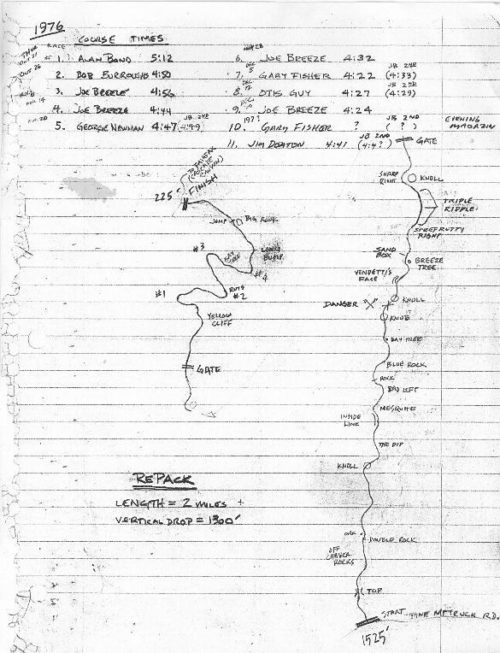 1976
COURSE TIMES
RACE
1. ALAN BOND 5:12
2. BOB BURROWES 4:50
3. JOE BREEZE 4:56
4. JOE BREEZE 4:44
5. GEORGE NEWMAN 4:47
6. JOE BREEZE 4:32
7. GARY FISHER 4:22 (4:33)
8. OTIS GUY 4:27 (4:29)
9. JOE BREEZE 4:24
197?
10. GARY FISHER ? ( ? )
11. JIM 4:41 (4:4?)
EVENING
MAGAZINE
225'
FINISH
JUMP
BIG ROCK
#3
#4
#1
RUTS
#2
YELLOW
CLIFF
GATE
GATE
SHARP
RIGHT
KNOLL
TRIPLE
RIPPLE
RIGHT
SAND
BOX
BREEZE
TREE
VENDETTI'S
FACE
DANGER "X"
KNOLL
KNOB
BAY TREE
BLUE ROCK
ROCK
BAD LEFT
MESQUITE
INSIDE
LINE
THE DIP
KNOLL
REPACK
LENGTH = 2 MILES +
VERTICAL DROP = 1300'
DOUBLE ROCK
OFF
CAMBER
ROCKS
TOP
START
PINE MT TRUCK RD.
1525'